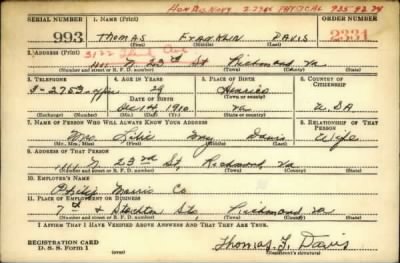 Hon Dis Navy PHYSICAL 935
SERIAL NUMBER 1. NAME (Print) ORDER NUMBER
993 THOMAS FRANKLIN DAVIS 2334
(First) (Middle) (Last)
2. ADDRESS (Print)
411 N 23rd St Richmond Va
(Number and street or R. F. D. number) (Town) (County) (State)
3. TELEPHONE 4. AGE IN YEARS 5. PLACE OF BIRTH 6. COUNTRY OF CITIZENSHIP
29 Henrico
DATE OF BIRTH (Town or county)
Va USA
(Exchange) (No.) (Mo.) (Day) (Yr.) (State or country)
7. NAME OF PERSON WHO WILL ALWAYS KNOW YOUR ADDRESS 8. RELATIONSHIP OF THAT PERSON
Mrs. Lillie May Davis Wife
(Mr., Mrs., Miss) (First) (Middle) (Last)
9. ADDRESS OF THAT PERSON
411 N 23rd St, Richmond, Va
(Number and street or R. F. D. number) (Town) (County) (State)
10. EMPLOYER'S NAME
Philip Morris Co
11. PLACE OF EMPLOYMENT OR BUSINESS
7th & Stockton Sts, Richmond Va
(Number and street or R. F. D. number) (Town) (County) (State)
I AFFIRM THAT I HAVE VERIFIED ABOVE ANSWERS AND THAT THEY ARE TRUE.
REGISTRATION CARD
D. S. S. Form 1 (over) Thomas F. Davis
(Registrant's signature)